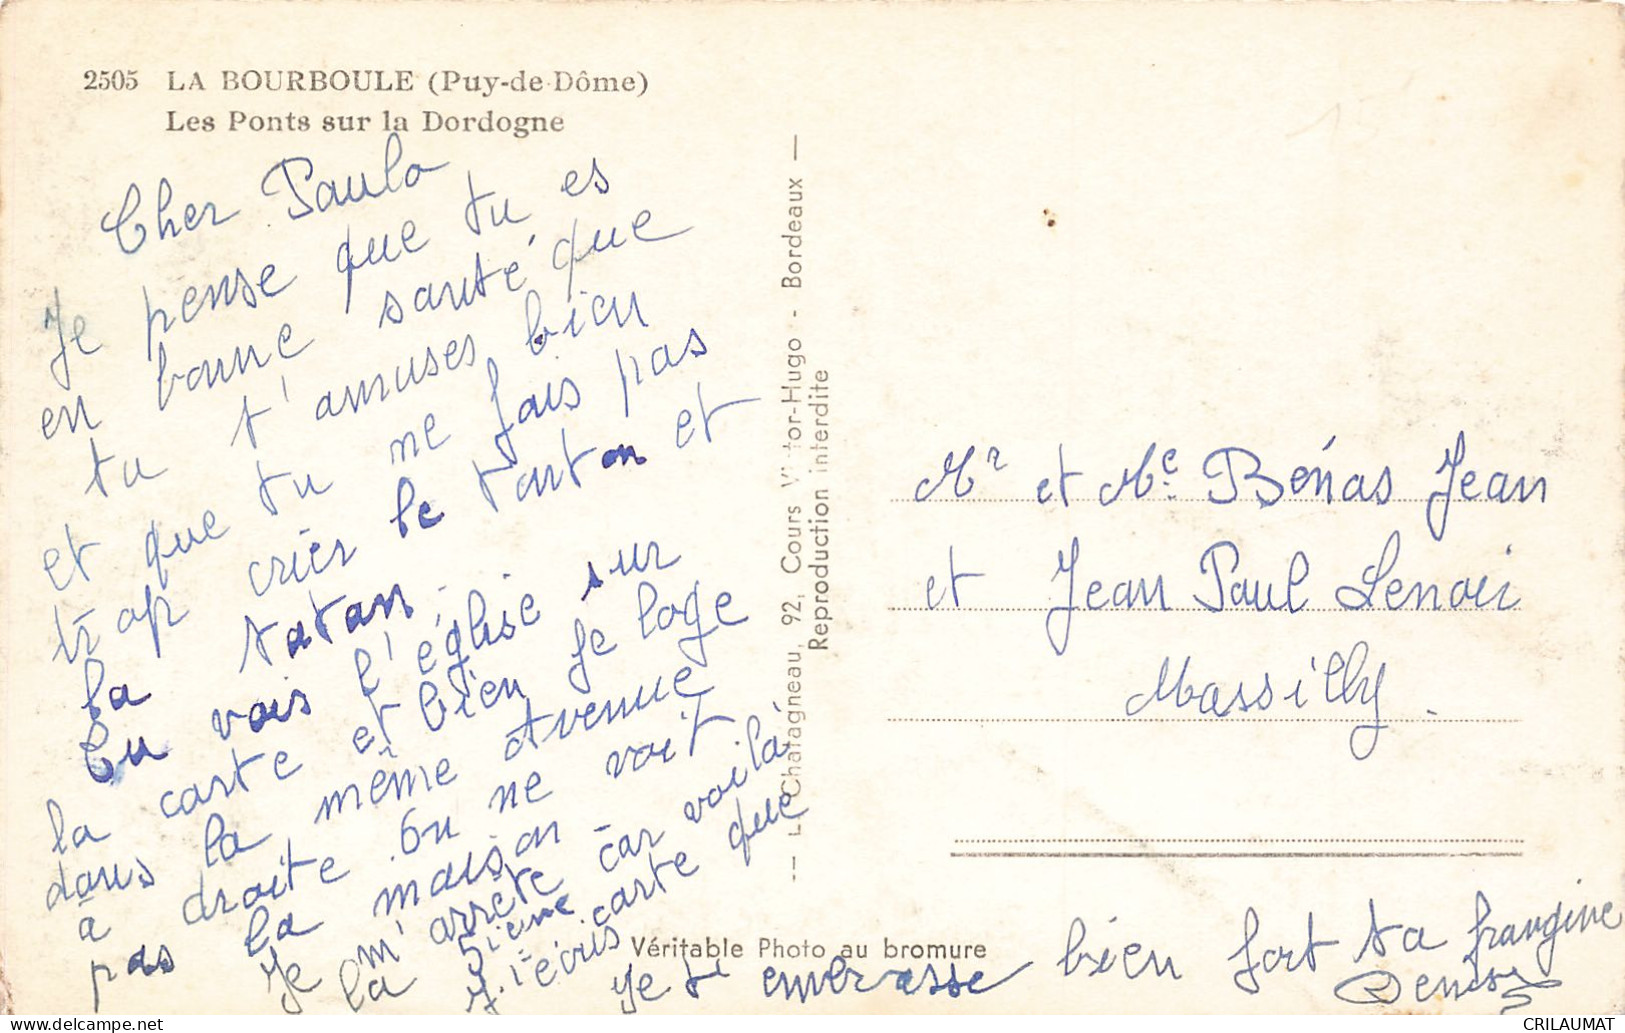 2505 LA BOURBOULE (Puy-de-Dôme)
Les Ponts sur la Dordogne
Cher Paulo
Je pense que tu es
en bonne santé que
tu t'amuses bien
et que tu ne fais pas
trop crier le tonton et
la tatan.
Tu vois l'église sur
la carte et bien je loge
dans la même Avenue
à droite. On ne voit
pas la maison.
Je m'arrête car voilà
la 5ième carte que
j'écris
Je te embrasse bien fort ta frangine
Denise
L. Chatagneau, 92, Cours Victor-Hugo - Bordeaux —
Reproduction interdite
Véritable Photo au bromure
Mr et Me. Bénas Jean
et Jean Paul Lenoir
Massilly.
CRILAUMAT